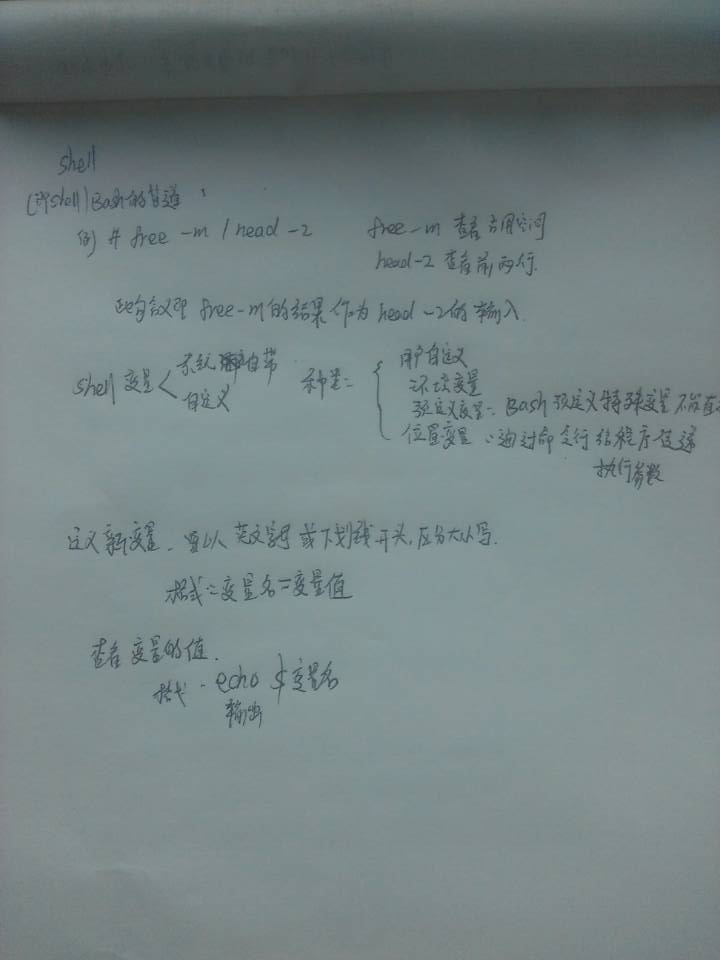 shell
(即shell) Bash的管道:
例 # free -m | head -2 free -m 查看占用空间
head -2 查看前两行.
此句含义即 free -m的结果作为 head -2的输入
shell 变量 系统自带 自定义 种类: 用户自定义
环境变量
预定义变量: Bash 预定义特殊变量 不能直
位置变量: 通过命令行给程序传递
执行参数
定义新变量. 要以英文字母或下划线开头, 区分大小写.
格式: 变量名=变量值
查看变量的值.
格式. echo $变量名
输出